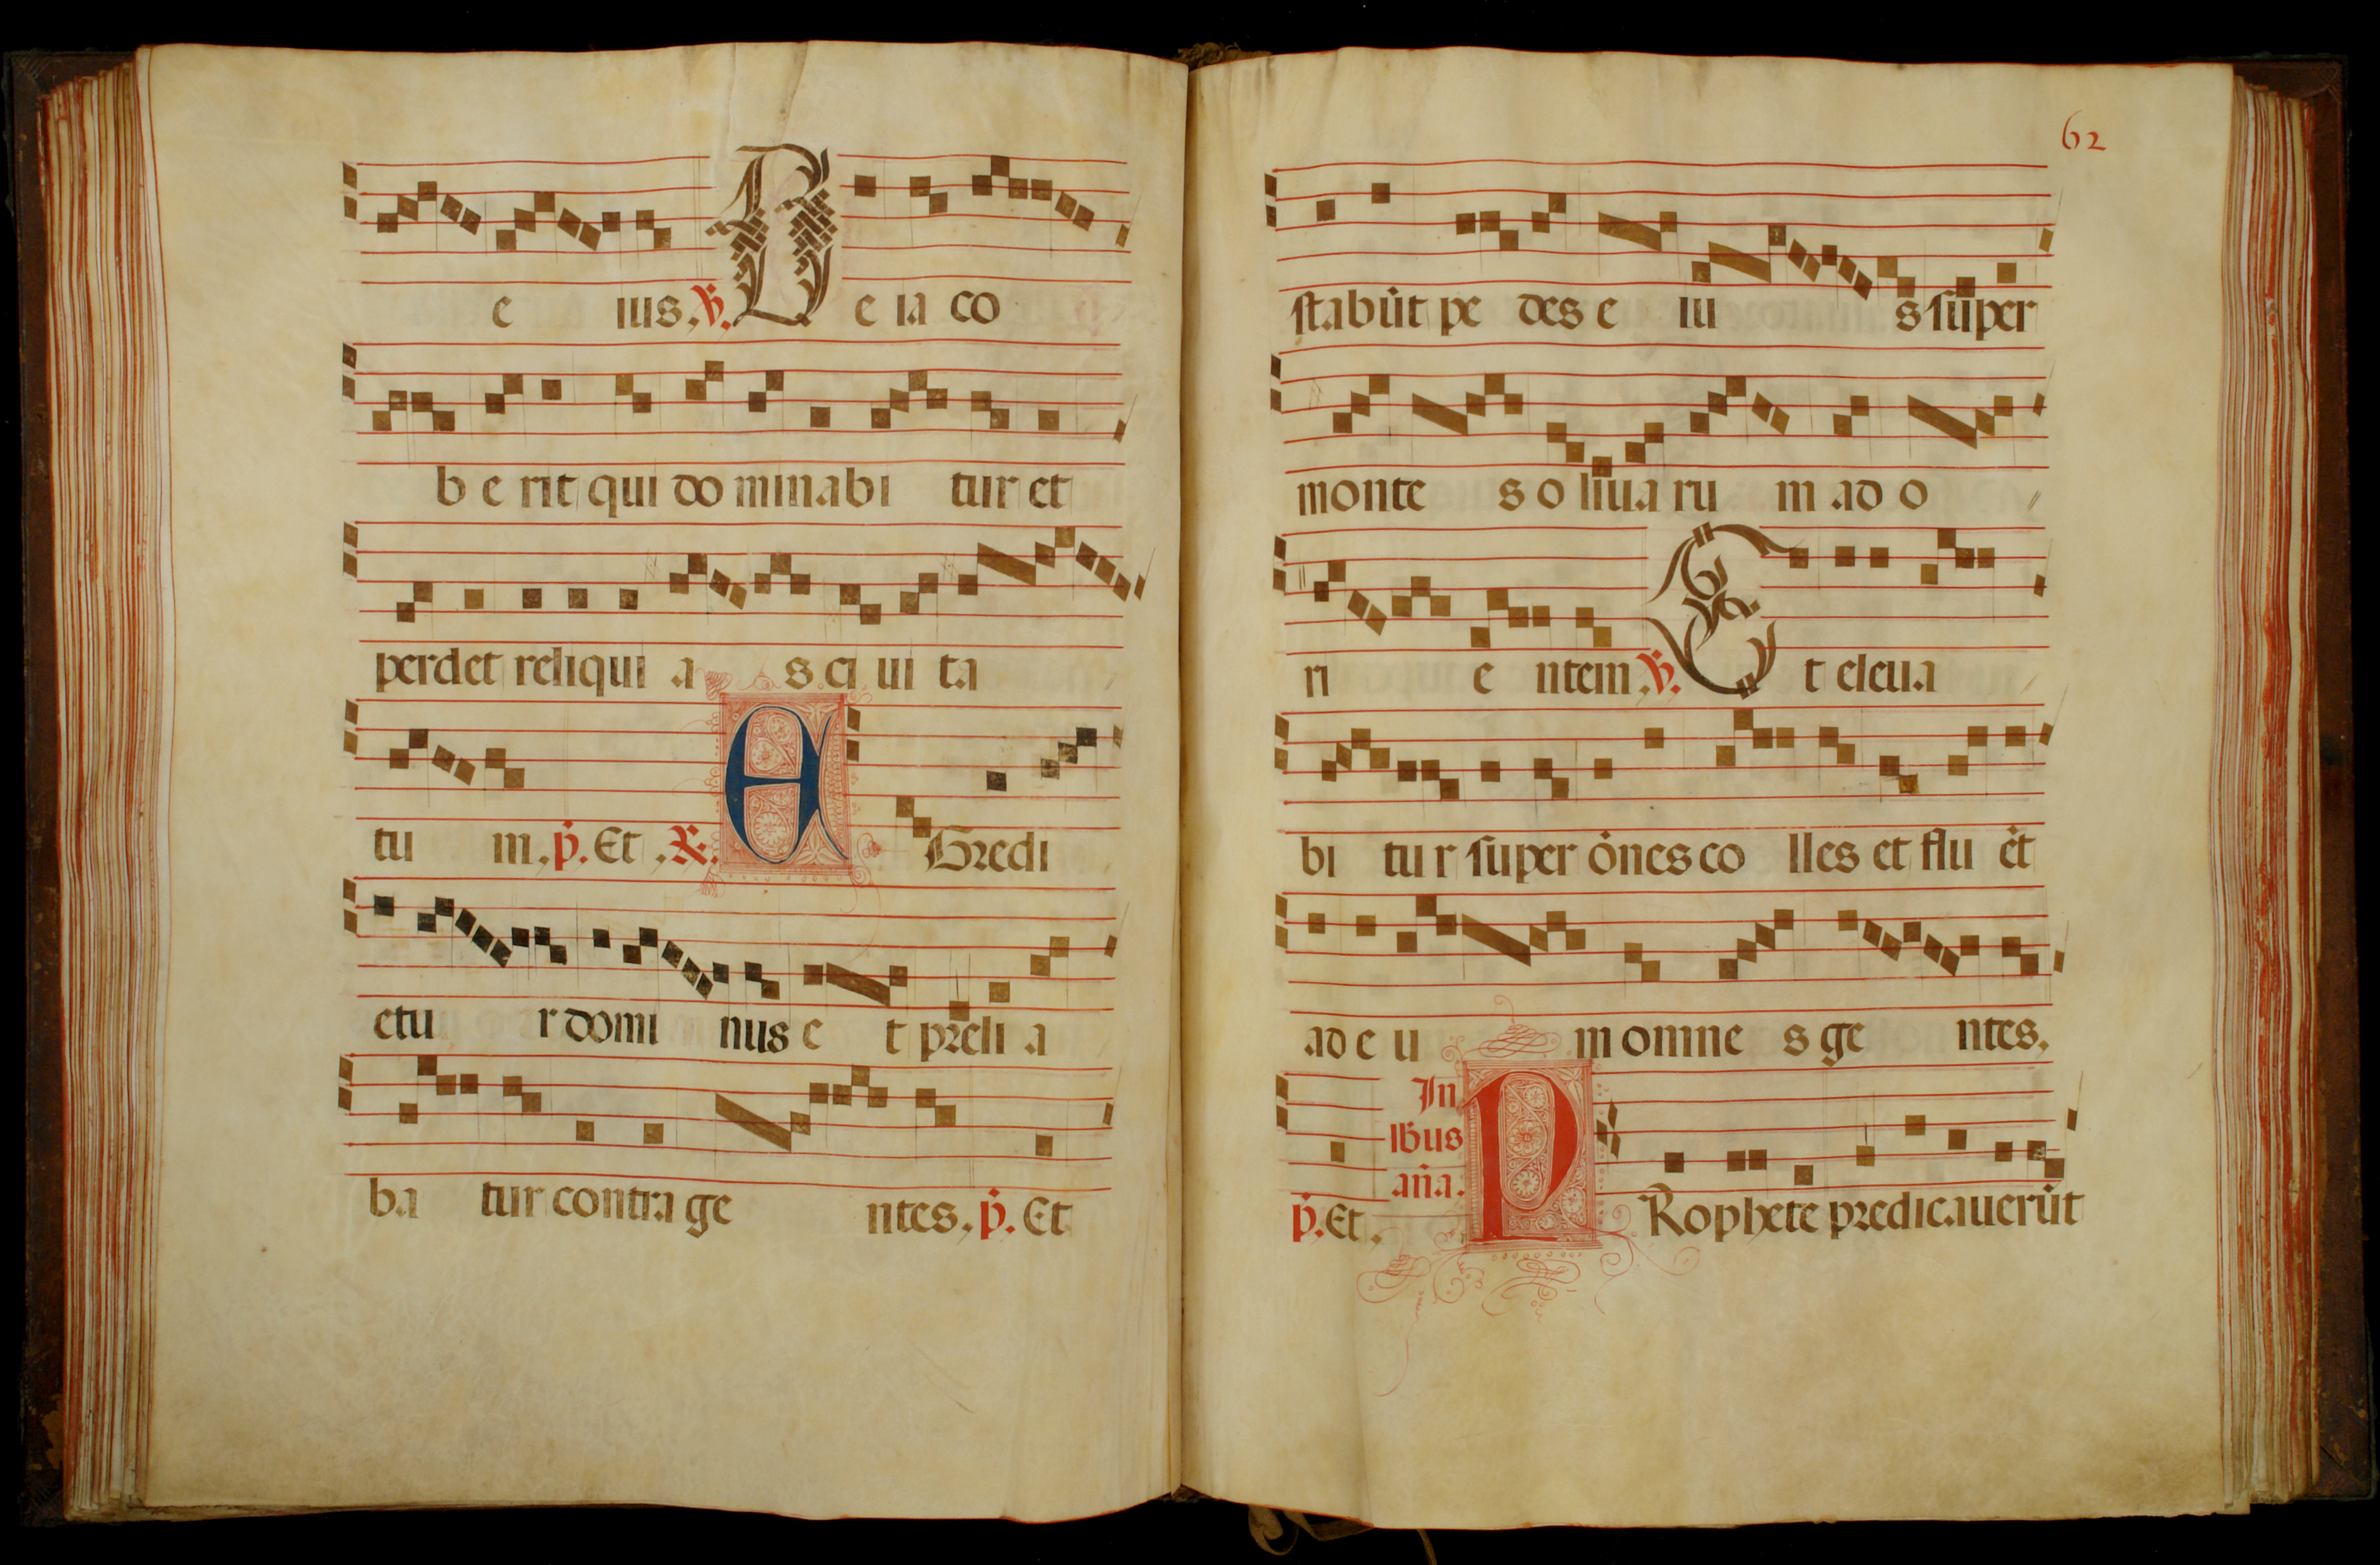 e ius. ℣. De ia co
b e rit qui do minabi tur et
perdet reliqui a s ci ui ta
tu m. p̄. Et. ℟. E Gredi
etu r domi nus e t preli a
ba tur contra ge ntes. p̄. Et
62
stabūt pe des e iu s super
monte s o liua ru m ad o
ri e ntem. ℣. Et eleua
bi tu r super ōnes co lles et flu ēt
ad e u m omne s ge ntes.
p̄. Et. In
lb̄us
an̄a. PRophete predicauerūt